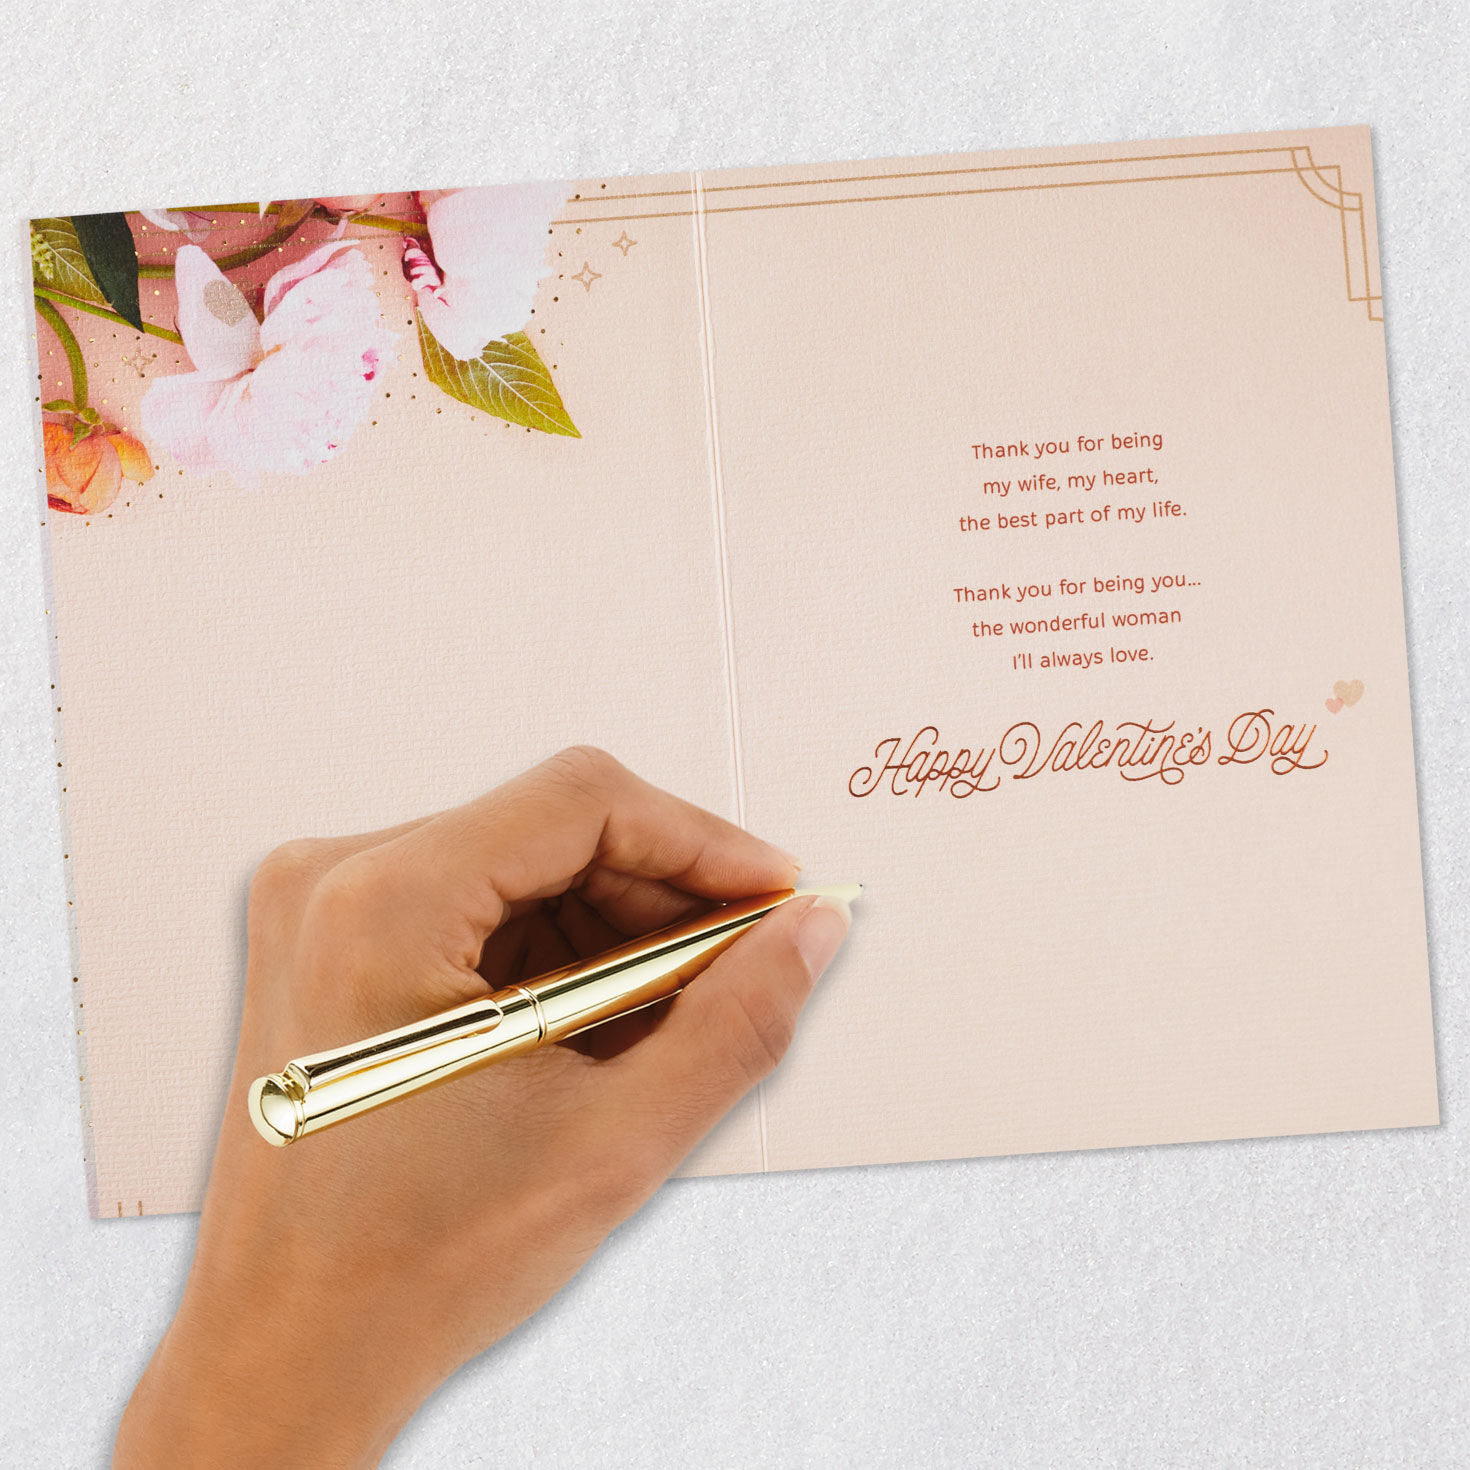 Thank you for being
my wife, my heart,
the best part of my life.
Thank you for being you...
the wonderful woman
I'll always love.
Happy Valentine's Day